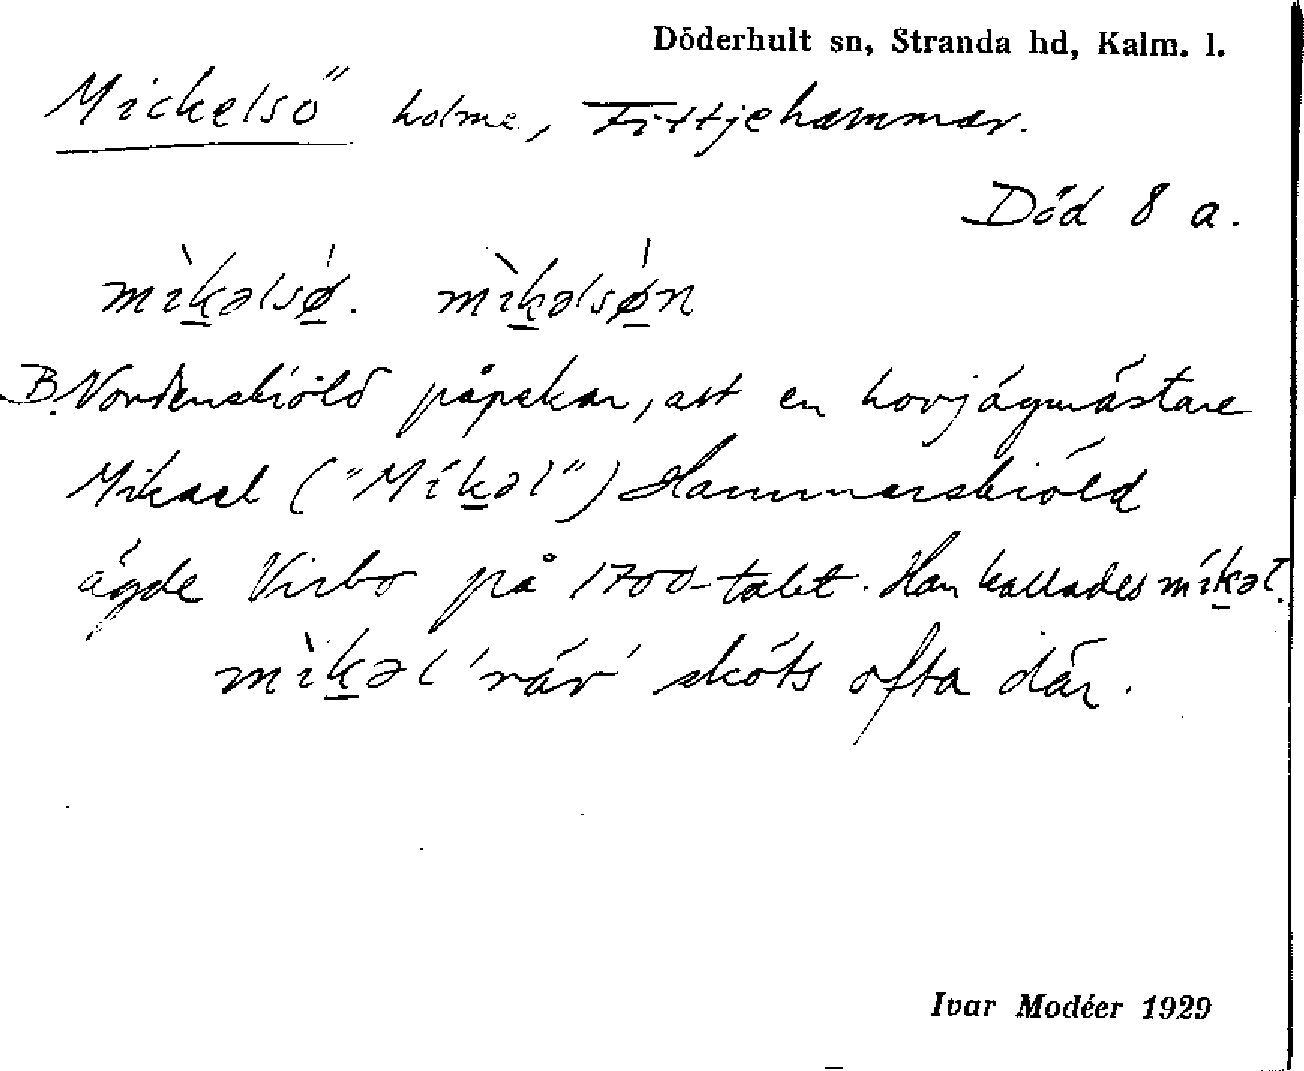 Döderhult sn, Stranda hd, Kalm. l.
Mickelsö holme, Fittjehammar.
Död 8 a.
mìk̲əlsǿ̲. mìk̲əlsǿ̲n
B. Nordenskiöld påpekar, att en hovjägmästare
Mikael ("Mík̲əl") Hammarskiöld
ägde Virbo på 1700-talet. Han kallades mík̲əl.
mìk̲əl 'räv' sköts ofta där.
Ivar Modéer 1929